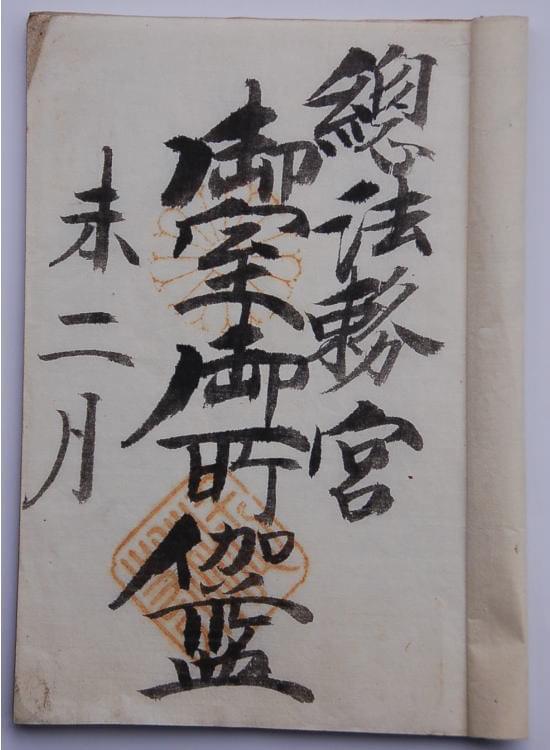 總法務宮
御室御所伽藍
未二月